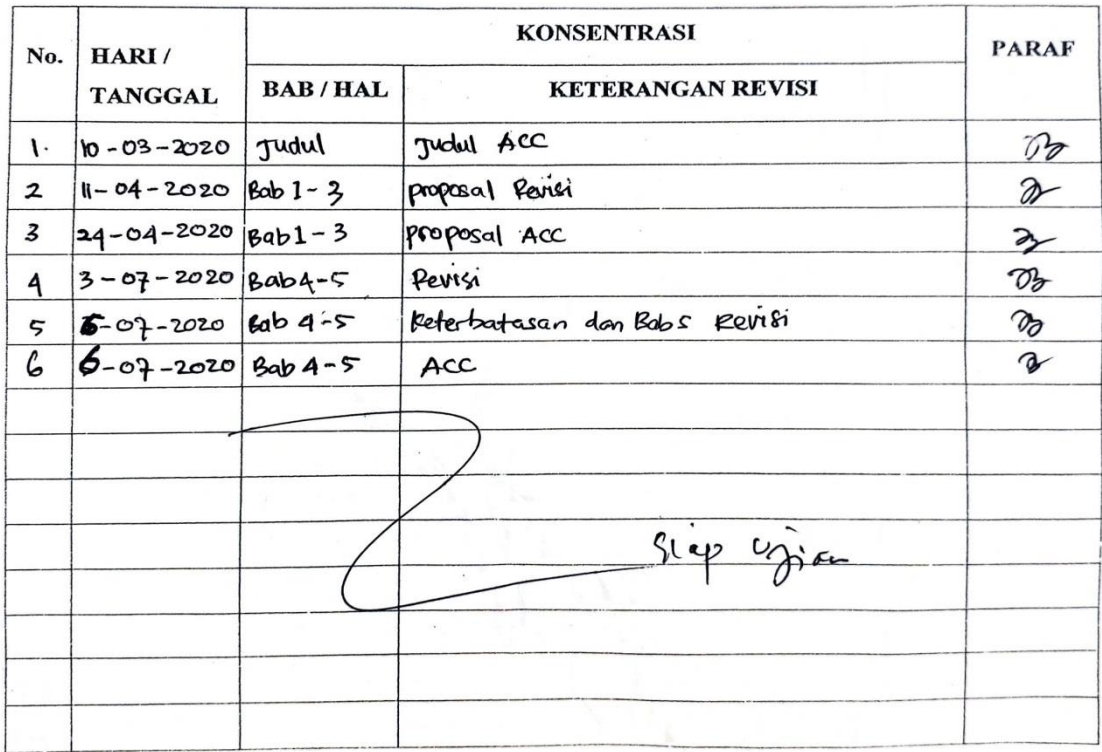 No. HARI / TANGGAL KONSENTRASI PARAF
BAB / HAL KETERANGAN REVISI
1. 10-03-2020 Judul Judul ACC
2 11-04-2020 Bab 1-3 proposal Revisi
3 24-04-2020 Bab 1-3 proposal ACC
4 3-07-2020 Bab 4-5 Revisi
5 5-07-2020 Bab 4-5 Keterbatasan dan Bab 5 Revisi
6 6-07-2020 Bab 4-5 ACC
Siap Ujian